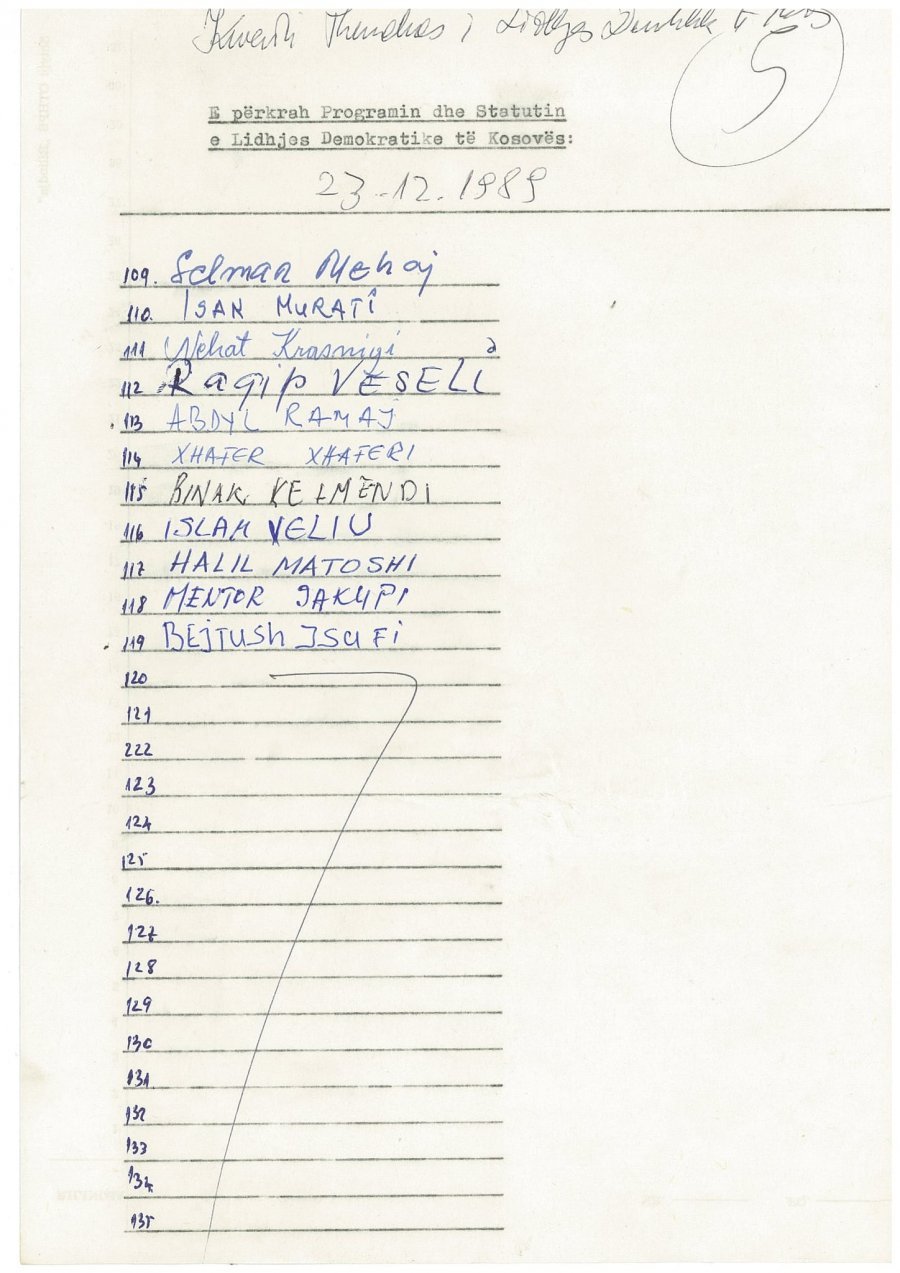 Kuvendi Themelues i Lidhjes Demokratike të
5
E përkrah Programin dhe Statutin
e Lidhjes Demokratike të Kosovës:
23-12.1989
109. Selman Mehaj
110. ISAN MURATI
111 Nehat Krasniqi
112 Ragip VESELI
113 ABDYL RAMAJ
114 XHAFER XHAFERI
115 BINAK KELMENDI
116 ISLAM VELIU
117 HALIL MATOSHI
118 MENTOR JAKUPI
119 BEJTUSH ISUFI
120
121
222
123
124
125
126.
127
128
129
130
131
132
133
134
135